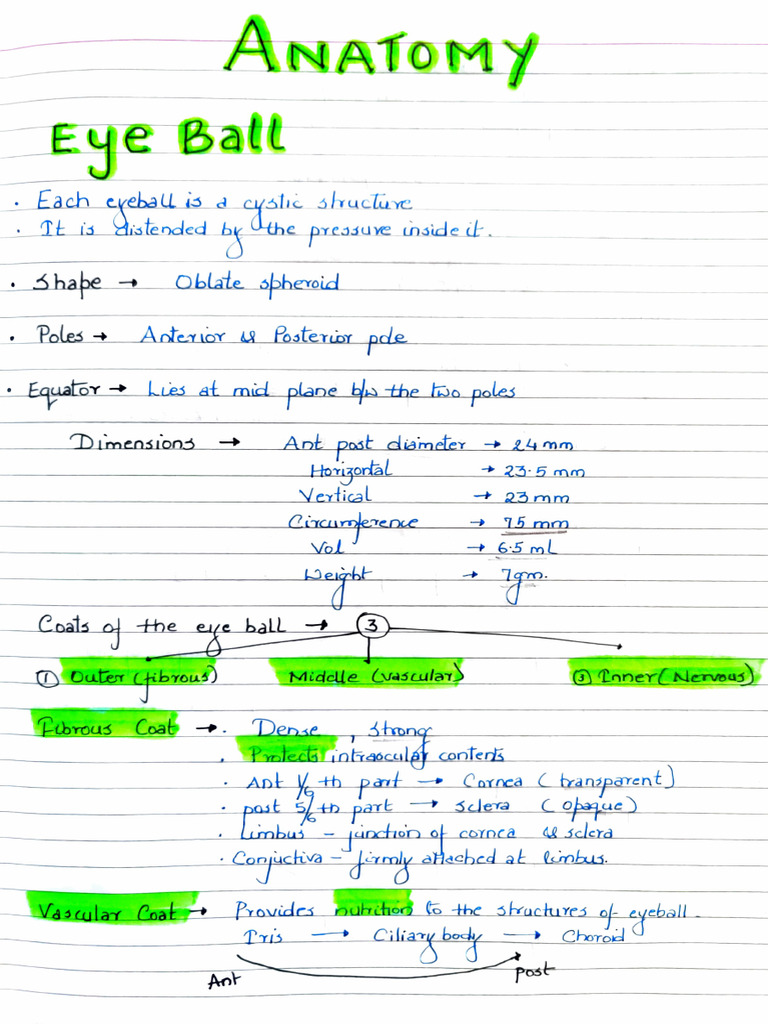 ANATOMY
Eye Ball
· Each eyeball is a cystic structure
· It is distended by the pressure inside it.
· Shape → Oblate spheroid
· Poles → Anterior & Posterior pole
· Equator → Lies at mid plane b/w the two poles
Dimensions → Ant post diameter → 24 mm
Horizontal → 23.5 mm
Vertical → 23 mm
Circumference → 75 mm
Vol → 6.5 mL
Weight → 7gm.
Coats of the eye ball → 3
① Outer (fibrous) Middle (vascular) ③ Inner (Nervous)
Fibrous Coat → · Dense , strong
· Protects intraocular contents
· Ant 1/6 th part → Cornea (transparent)
· post 5/6 th part → sclera (opaque)
· Limbus - junction of cornea & sclera
· Conjuctiva - firmly attached at limbus.
Vascular Coat → Provides nutrition to the structures of eyeball.
Iris → Ciliary body → Choroid
Ant post